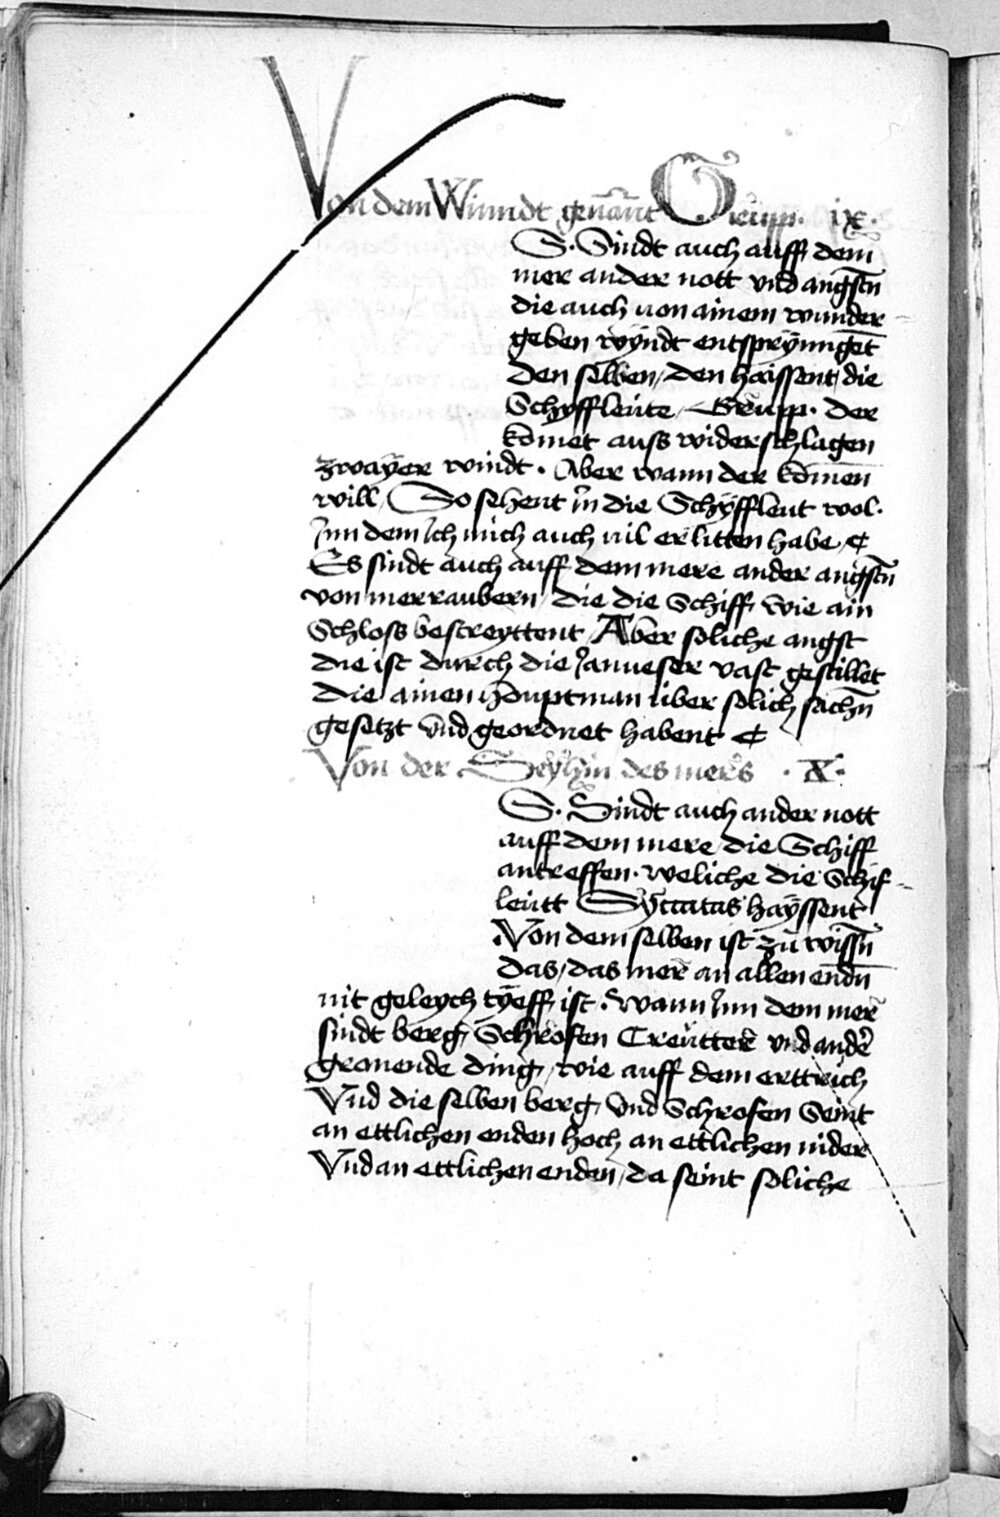 Von dem Winndt genant Grupp. ix.
S. Sindt auch auff dem
mer ander nott vnd angstn
die auch von ainem wunder-
geben wyndt entsprynnget
den selben / den haissent die
Schyffleute / Grupp. der
komet auss widerschlagen
zwayer windt. Aber wann der komen
will / So sehent in die Schyffleut wol.
Inn dem Ich mich auch vil erlitten habe ¢
Es sindt auch auff dem mere ander angstn
von merraubern / die die Schiff wie ain
Schloss bestreyttent / Aber soliche angst
die ist durch die Janueser vast gestillet
die ainen Hauptman uber solich sachn
gesetzt vnd geordnet habent ¢
Von der mers . X.
S. Sindt auch ander nott
auff dem mere / die Schiff
antreffen. weliche die Schif-
leutt hayssent
Von dem selben ist zu wissn
das / das mer an allen endn
nit geleych tyeff ist. wann Inn dem mer
sindt berg / Schrofen Creutter vnd ander
gronende ding / wie auff dem erttrich
Vnd die selben berg / vnd Schrofen Seint
an ettlichen enden hoch an ettlichen nider
Vnd an ettlichen enden / da seint soliche